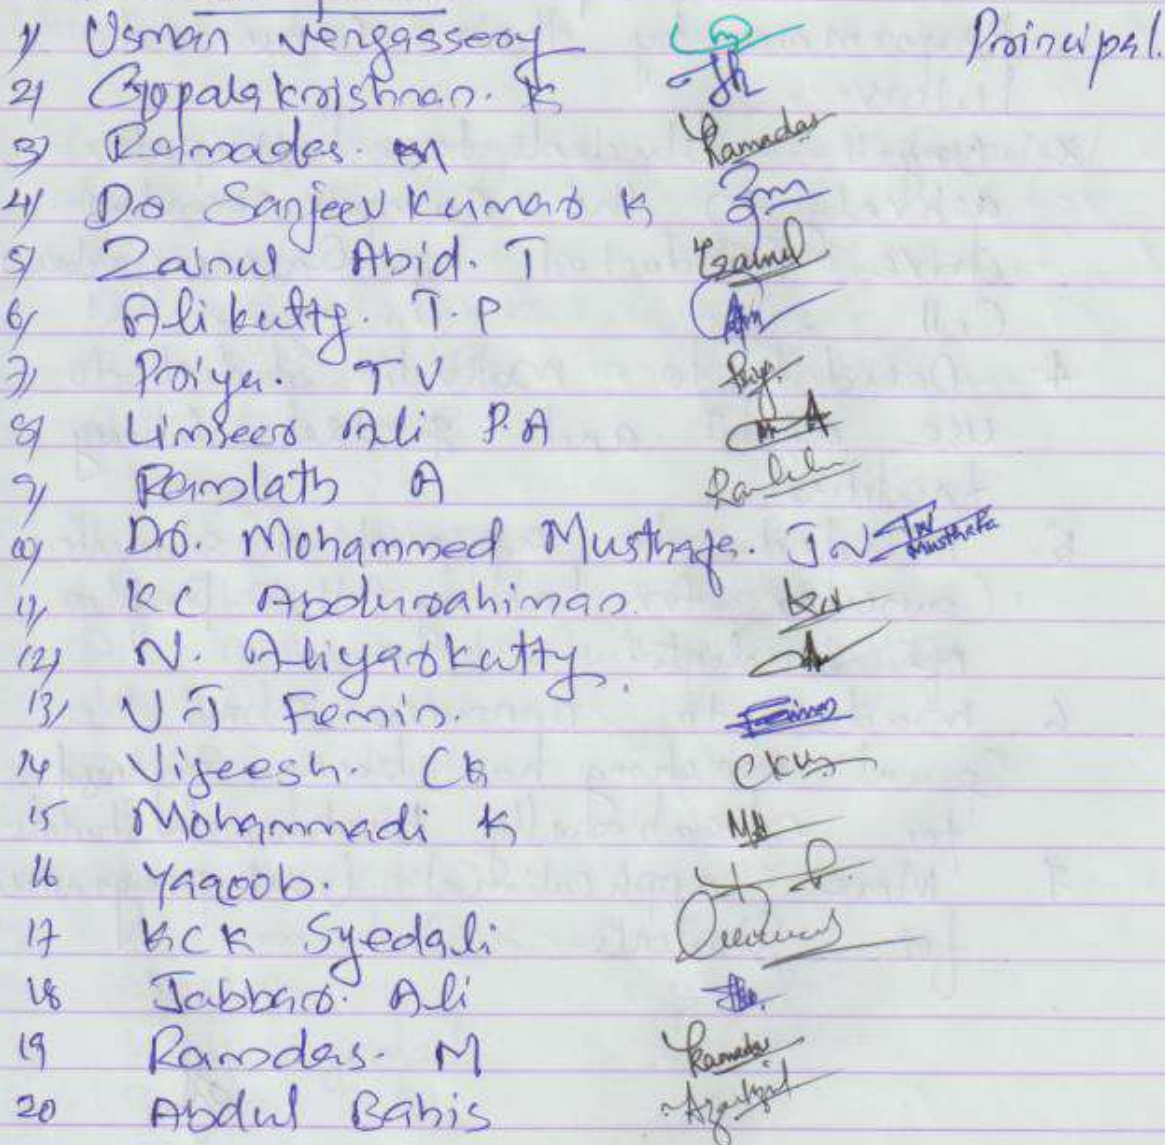 1) Usman Vengasseory Principal.
2) Gopalakrishnan. K
3) Ramadas. M Ramadas
4) Dr Sanjeev Kumar K
5) Zanul Abid. T Zainul
6) Alikutty. T.P
7) Priya. T V
8) Umseer Ali P.A
9) Ramlath A
10) Dr. Mohammed Musthafa. T N TN Musthafa
11) KC Abdurahiman
12) N. Aliyarkutty.
13) V T Femin.
14 Vijeesh. CK
15 Mohammadi K
16 Yaqoob.
17 KCK Syedali
18 Jabbar. Ali
19 Ramdas. M Ramadas
20 Abdul Bahis